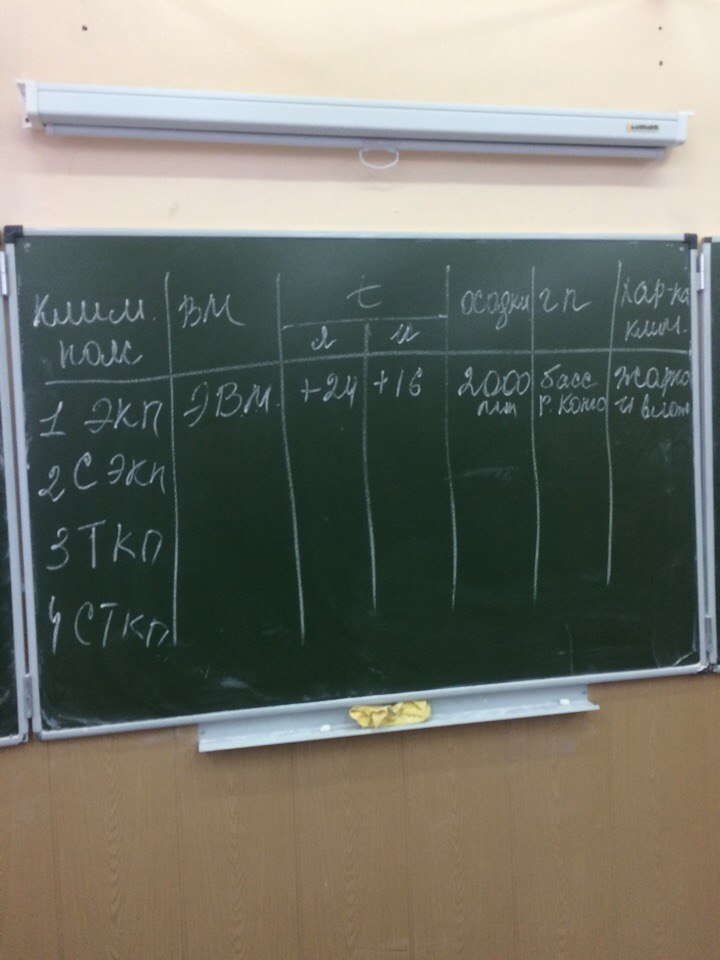 клим. ВМ t осадки гп хар-ка
пояс я и клим.
1 ЭКП ЭВМ +24 +16 2000 басс жарко
мм р. Конго и влаж
2 СЭКП
3 ТКП
4 СТКП